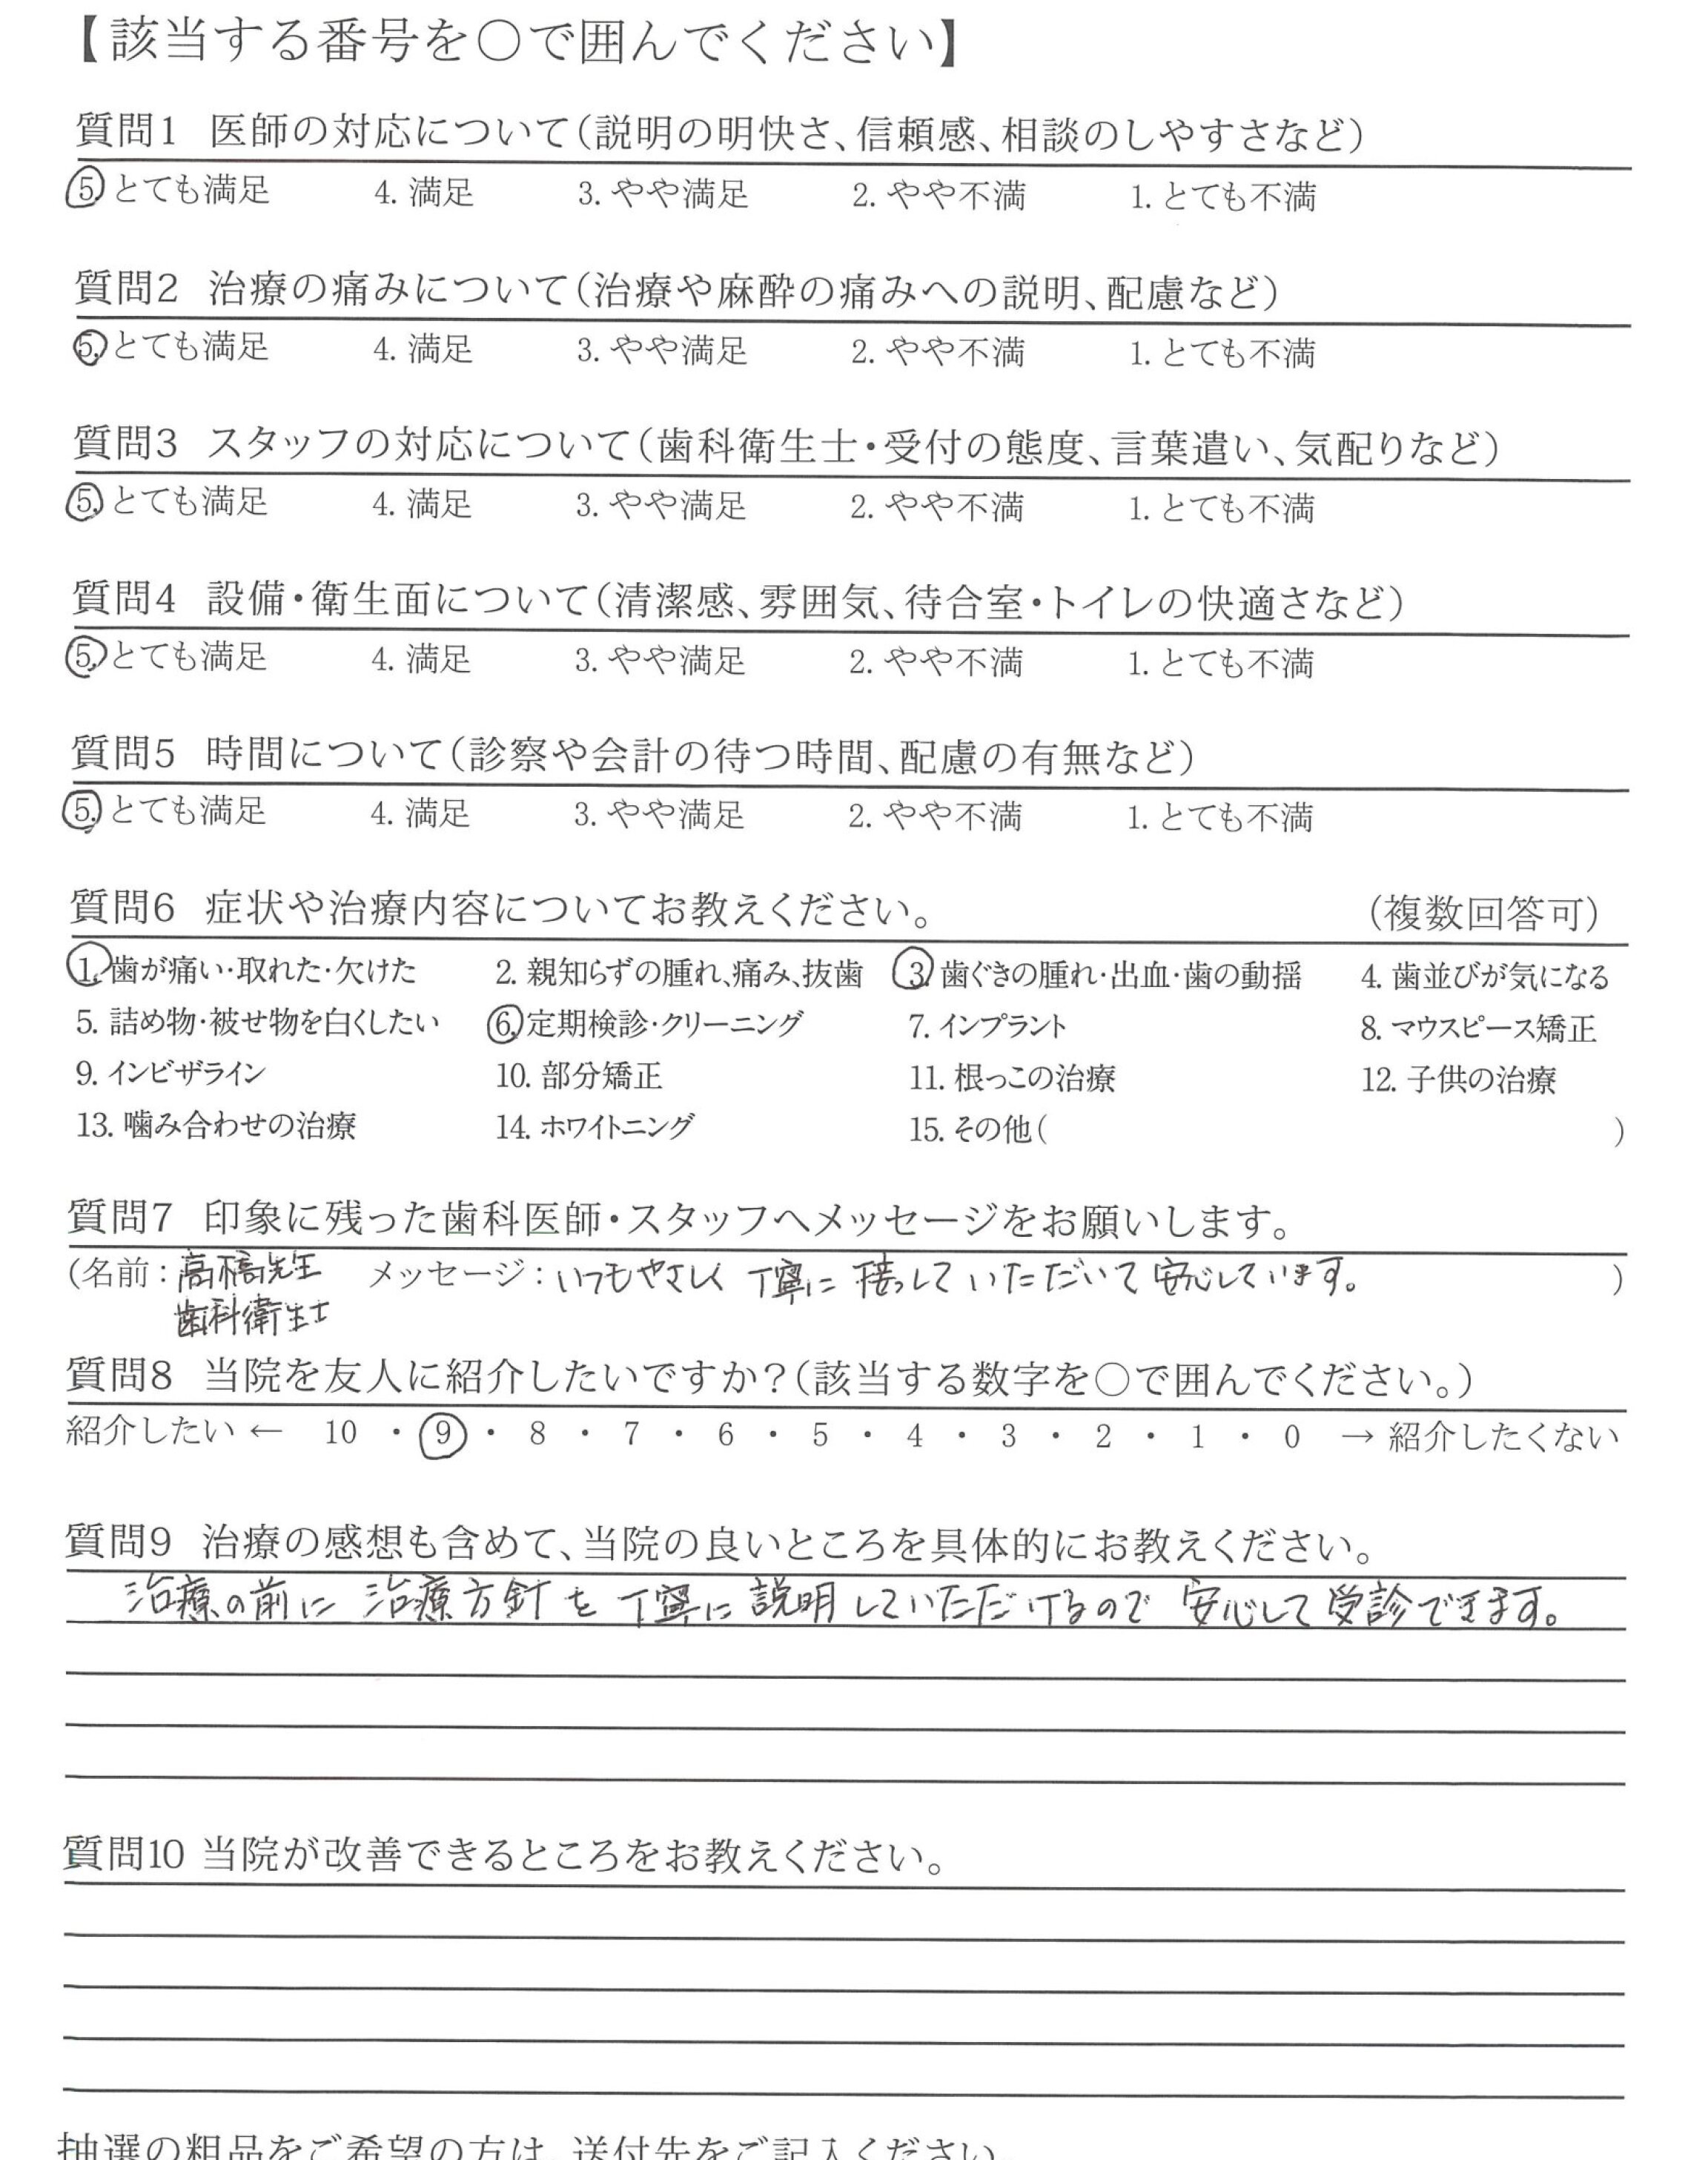 【該当する番号を○で囲んでください】
質問1 医師の対応について(説明の明快さ、信頼感、相談のしやすさなど)
5. とても満足 4. 満足 3. やや満足 2. やや不満 1. とても不満
質問2 治療の痛みについて(治療や麻酔の痛みへの説明、配慮など)
5. とても満足 4. 満足 3. やや満足 2. やや不満 1. とても不満
質問3 スタッフの対応について(歯科衛生士・受付の態度、言葉遣い、気配りなど)
5. とても満足 4. 満足 3. やや満足 2. やや不満 1. とても不満
質問4 設備・衛生面について(清潔感、雰囲気、待合室・トイレの快適さなど)
5. とても満足 4. 満足 3. やや満足 2. やや不満 1. とても不満
質問5 時間について(診察や会計の待つ時間、配慮の有無など)
5. とても満足 4. 満足 3. やや満足 2. やや不満 1. とても不満
質問6 症状や治療内容についてお教えください。 (複数回答可)
1. 歯が痛い・取れた・欠けた 2. 親知らずの腫れ、痛み、抜歯 3. 歯ぐきの腫れ・出血・歯の動揺 4. 歯並びが気になる
5. 詰め物・被せ物を白くしたい 6. 定期検診・クリーニング 7. インプラント 8. マウスピース矯正
9. インビザライン 10. 部分矯正 11. 根っこの治療 12. 子供の治療
13. 噛み合わせの治療 14. ホワイトニング 15. その他( )
質問7 印象に残った歯科医師・スタッフへメッセージをお願いします。
(名前:高橋先生 メッセージ:いつもやさしく 丁寧に 接っしていただいて 安心しています。 )
歯科衛生士
質問8 当院を友人に紹介したいですか?(該当する数字を○で囲んでください。)
紹介したい ← 10 ・ 9 ・ 8 ・ 7 ・ 6 ・ 5 ・ 4 ・ 3 ・ 2 ・ 1 ・ 0 → 紹介したくない
質問9 治療の感想も含めて、当院の良いところを具体的にお教えください。
治療の前に 治療方針を 丁寧に 説明していただけるので 安心して受診できます。
質問10 当院が改善できるところをお教えください。
抽選の粗品をご希望の方は、送付先をご記入ください。